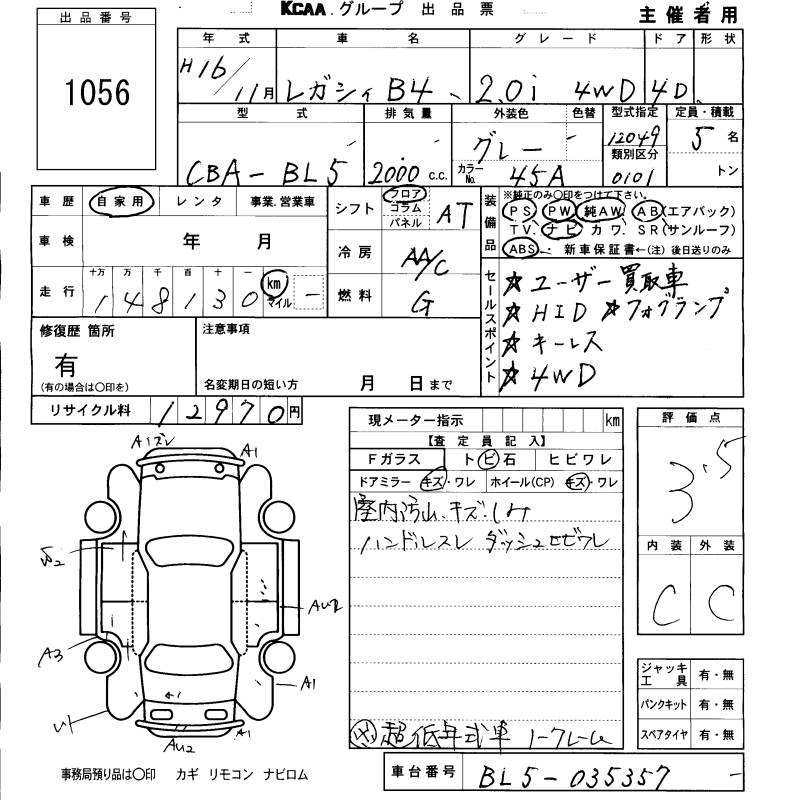 KCAA.グループ 出品票
主催者用
出品番号
1056
年式 車名 グレード ドア 形状
H16/11月 レガシィ B4 2.0i 4WD 4D
型式 排気量 外装色 色替 型式指定 定員・積載
CBA-BL5 2000c.c. グレー カラーNo. 45A 12049 5名
類別区分 0101 トン
車歴 自家用 レンタ 事業.営業車
シフト フロア コラム パネル AT
装備品 ※純正のみ○印をつけて下さい。
PS PW 純AW. AB(エアバック)
TV. ナビ カワ. SR(サンルーフ)
ABS 新車保証書←(注) 後日送りのみ
車検 年 月
冷房 AA/C
走行 十万 万 千 百 十 一
148130 km マイル
燃料 G
セールスポイント
☆ユーザー買取車
☆HID ☆フォグランプ
☆キーレス
☆4WD
修復歴 箇所
有
(有の場合は○印を)
注意事項
名変期日の短い方 月 日まで
リサイクル料 12970円
現メーター指示 km
【査定員記入】
Fガラス トビ石 ヒビワレ
ドアミラー キズ・ワレ ホイール(CP) キズ・ワレ
室内汚れ.キズ.シミ
ハンドルスレ ダッシュヒビワレ
超低年式車 ノークレーム
評価点
3.5
内装 外装
C C
A1ズレ
A1
AU2
A3
A1
A1
AU2
ジャッキ工具 有・無
パンクキット 有・無
スペアタイヤ 有・無
事務局預り品は○印 カギ リモコン ナビロム
車台番号 BL5-035357